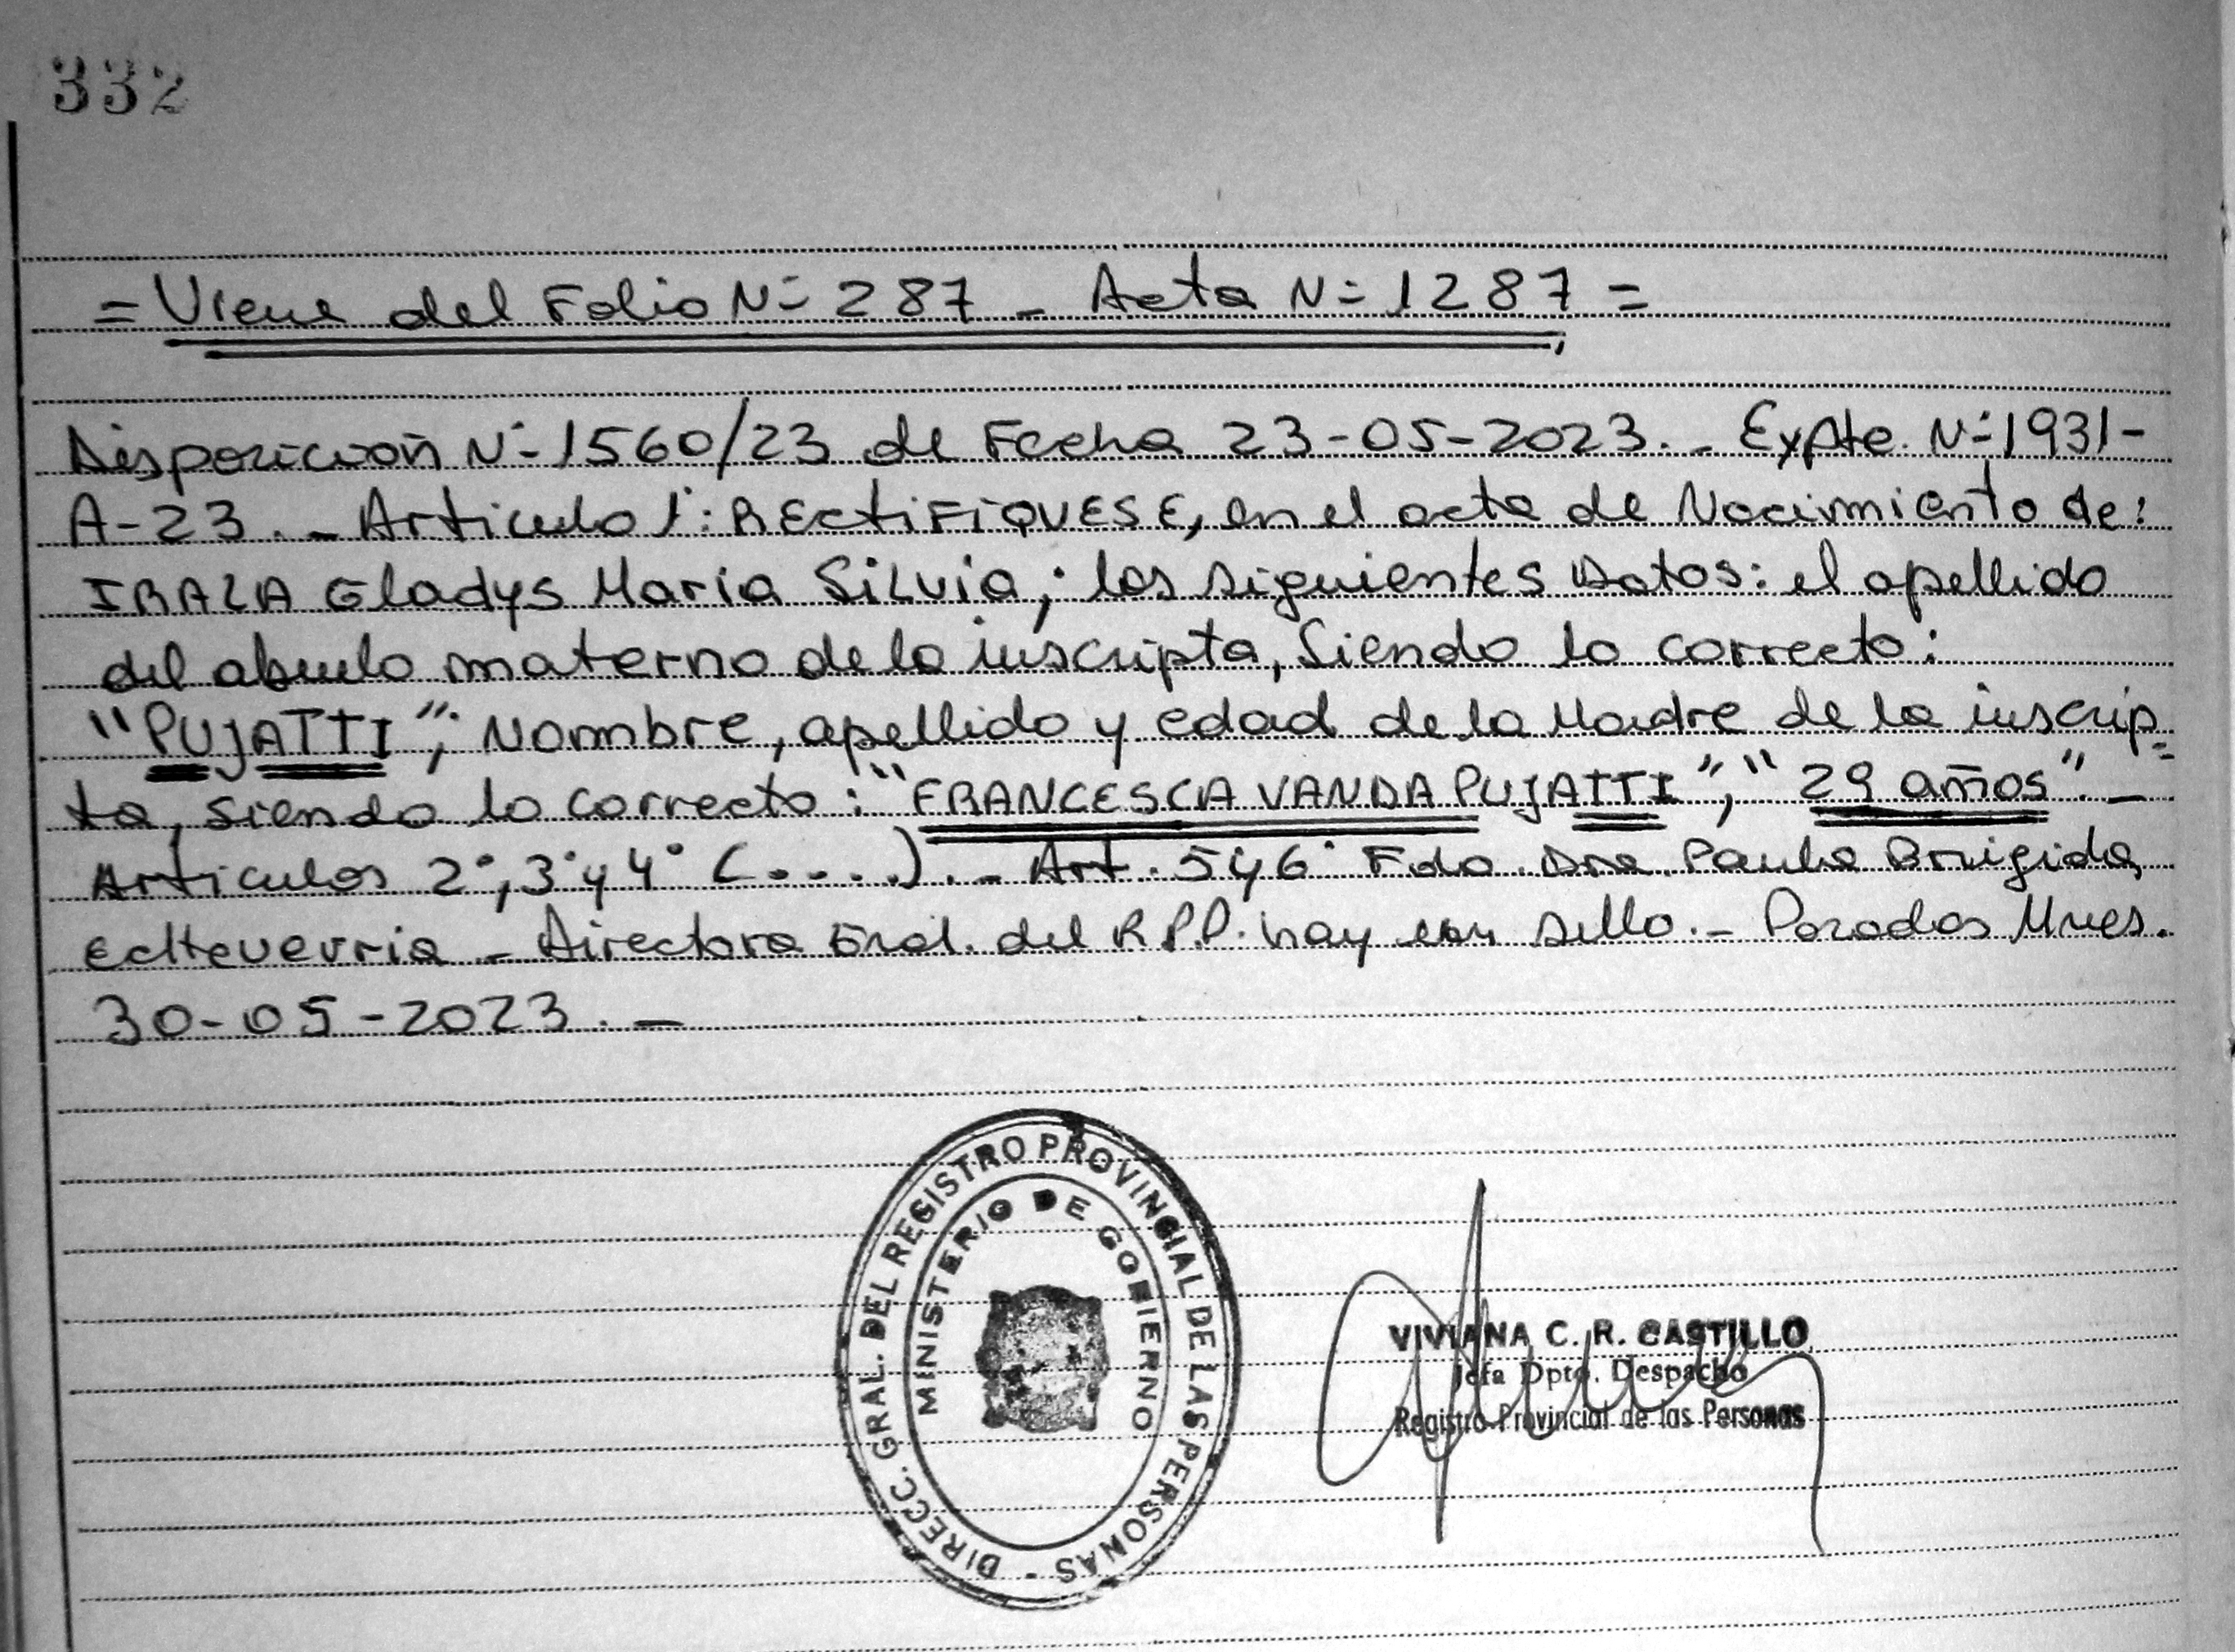 332
= Viene del Folio Nº 287 - Acta Nº 1287 =
Disposición Nº 1560/23 de Fecha 23-05-2023. - Expte. Nº 1931-
A-23. - Articulo 1°: RECTIFIQUESE, en el acta de Nacimiento de:
IRALA Gladys Maria Silvia; los siguientes Datos: el apellido
del abuelo materno de la inscripta, Siendo lo correcto:
"PUJATTI"; Nombre, apellido y edad de la Madre de la inscrip=
ta, siendo lo correcto: "FRANCESCA VANDA PUJATTI", "29 años". -
Articulos 2°, 3° y 4° (.....). - Art. 5 y 6° Fdo. Dra. Paula Brigida
Echeverria - Directora Gral. del R.P.P. hay un sello. - Posadas Mnes.
30-05-2023. -
DIRECC. GRAL. DEL REGISTRO PROVINCIAL DE LAS PERSONAS -
MINISTERIO DE GOBIERNO
VIVIANA C. R. CASTILLO
Jefa Dpto. Despacho
Registro Provincial de las Personas